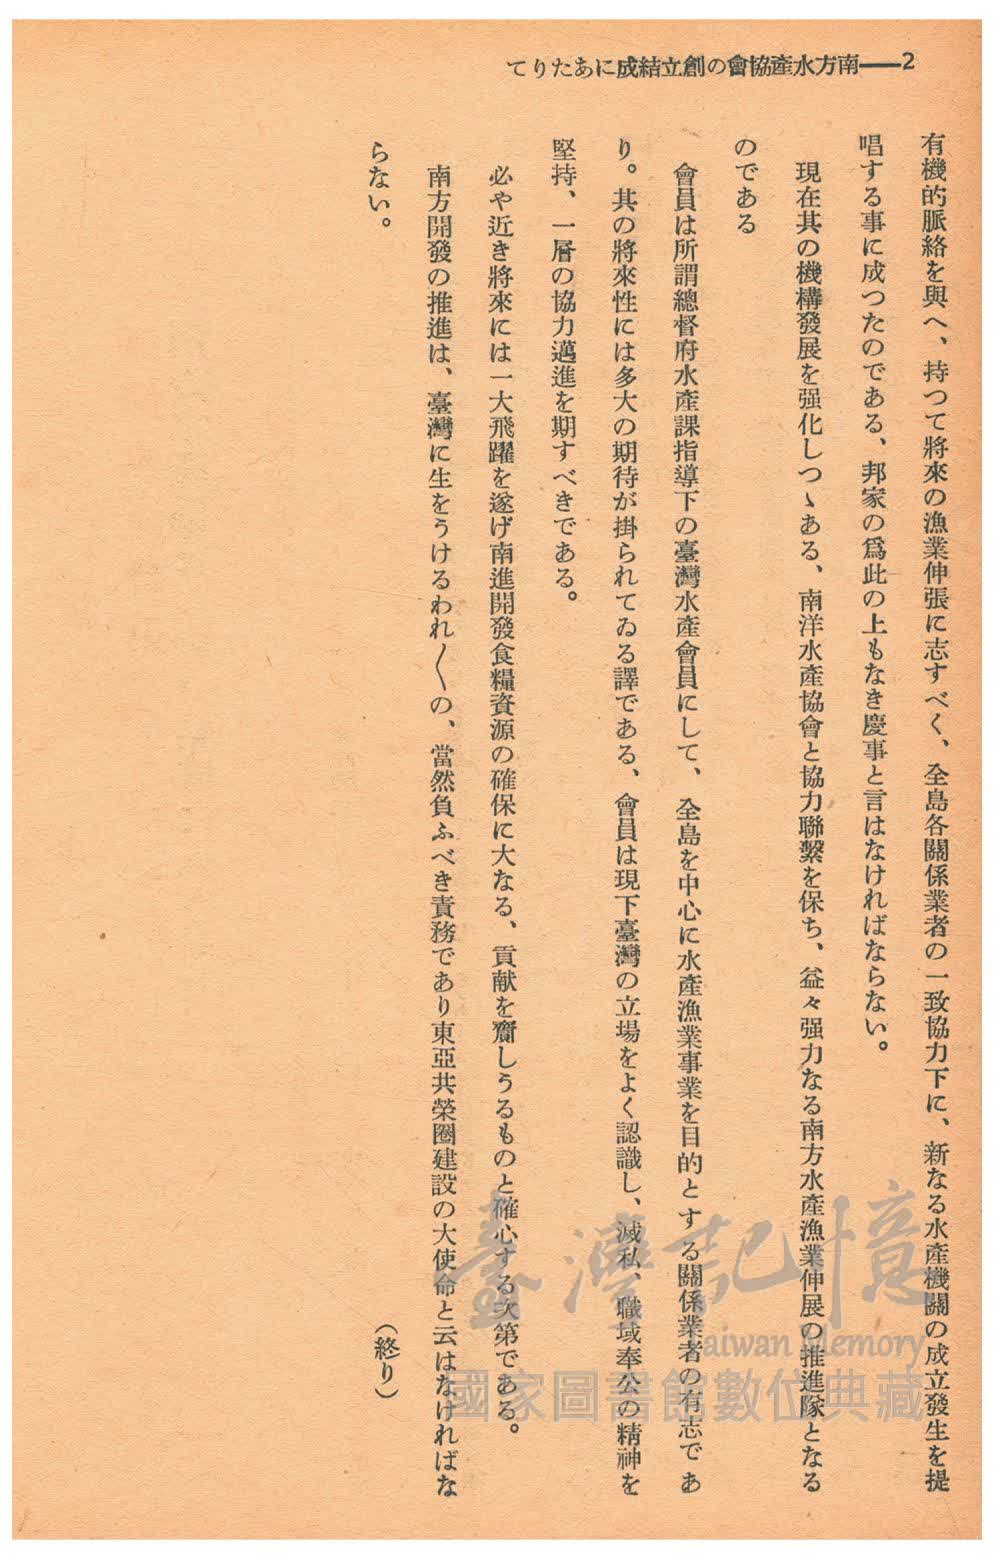 2──南方水產協會の創立結成にあたりて
有機的脈絡を與へ、持つて將來の漁業伸張に志すべく、全島各關係業者の一致協力下に、新なる水產機關の成立發生を提
唱する事に成つたのである、邦家の爲此の上もなき慶事と言はなければならない。
現在其の機構發展を强化しつゝある、南洋水產協會と協力聯繫を保ち、益々强力なる南方水產漁業伸展の推進隊となる
のである
會員は所謂總督府水產課指導下の臺灣水產會員にして、全島を中心に水產漁業事業を目的とする關係業者の有志であ
り。其の將來性には多大の期待が掛られてゐる譯である、會員は現下臺灣の立場をよく認識し、滅私、職域奉公の精神を
堅持、一層の協力邁進を期すべきである。
必や近き將來には一大飛躍を遂げ南進開發食糧資源の確保に大なる、貢献を齎しうるものと確心する次第である。
南方開發の推進は、臺灣に生をうけるわれ〳〵の、當然負ふべき責務であり東亞共榮圈建設の大使命と云はなければな
らない。
（終り）
臺灣記憶
Taiwan Memory
國家圖書館數位典藏